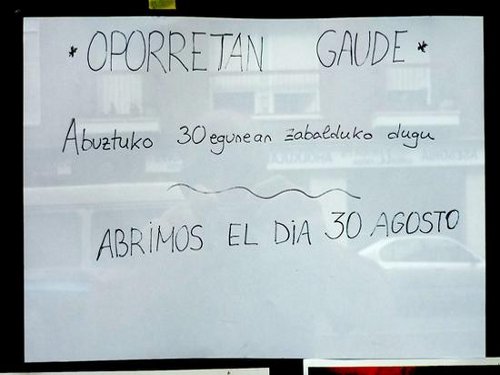 * OPORRETAN GAUDE *
Abuztuko 30 egunean zabalduko dugu
ABRIMOS EL DIA 30 AGOSTO